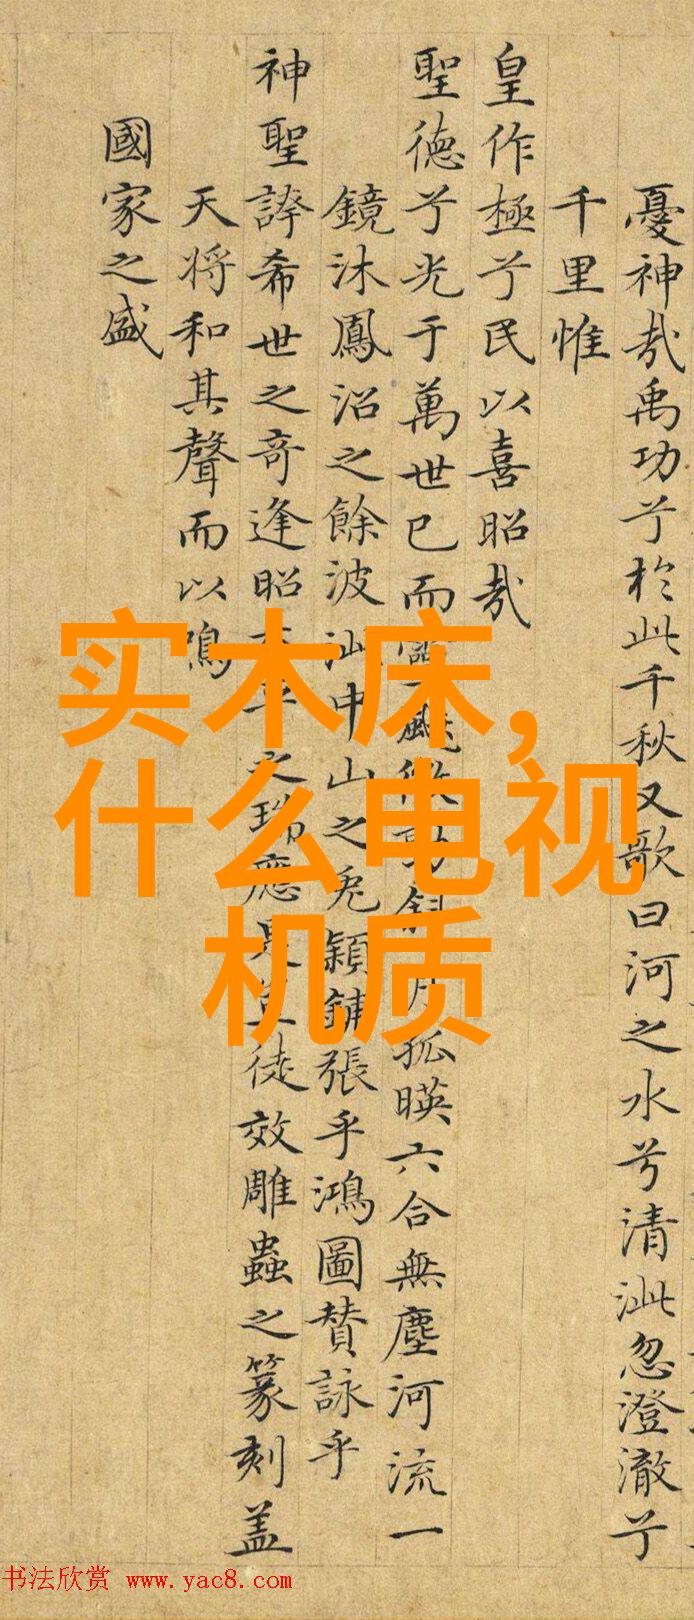 憂神哉禹功兮於此千秋又歌曰河之水兮清泚忽澄澈兮
千里惟
皇作極兮民以喜昭哉
聖德兮光于萬世已而靈飈微動斜月孤暎六合無塵河流一
鏡沐鳳沼之餘波汕中山之兔穎鋪張乎鴻圖賛詠乎
神聖誇希世之奇逢昭之瑞應是豈徒效雕蟲之篆刻盖
天將和其聲而以鳴
國家之盛
实木床，
什么电视
机质
书法欣赏 www.yac8.com